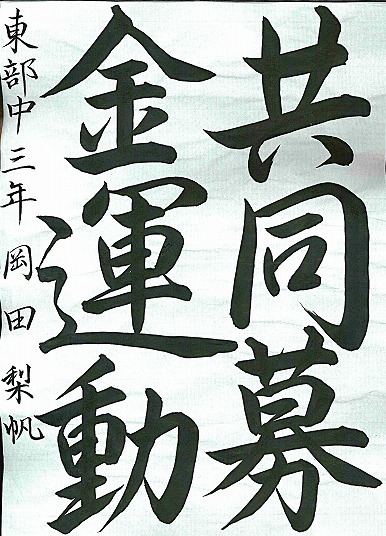 共同募
金運動
東部中三年 岡田梨帆